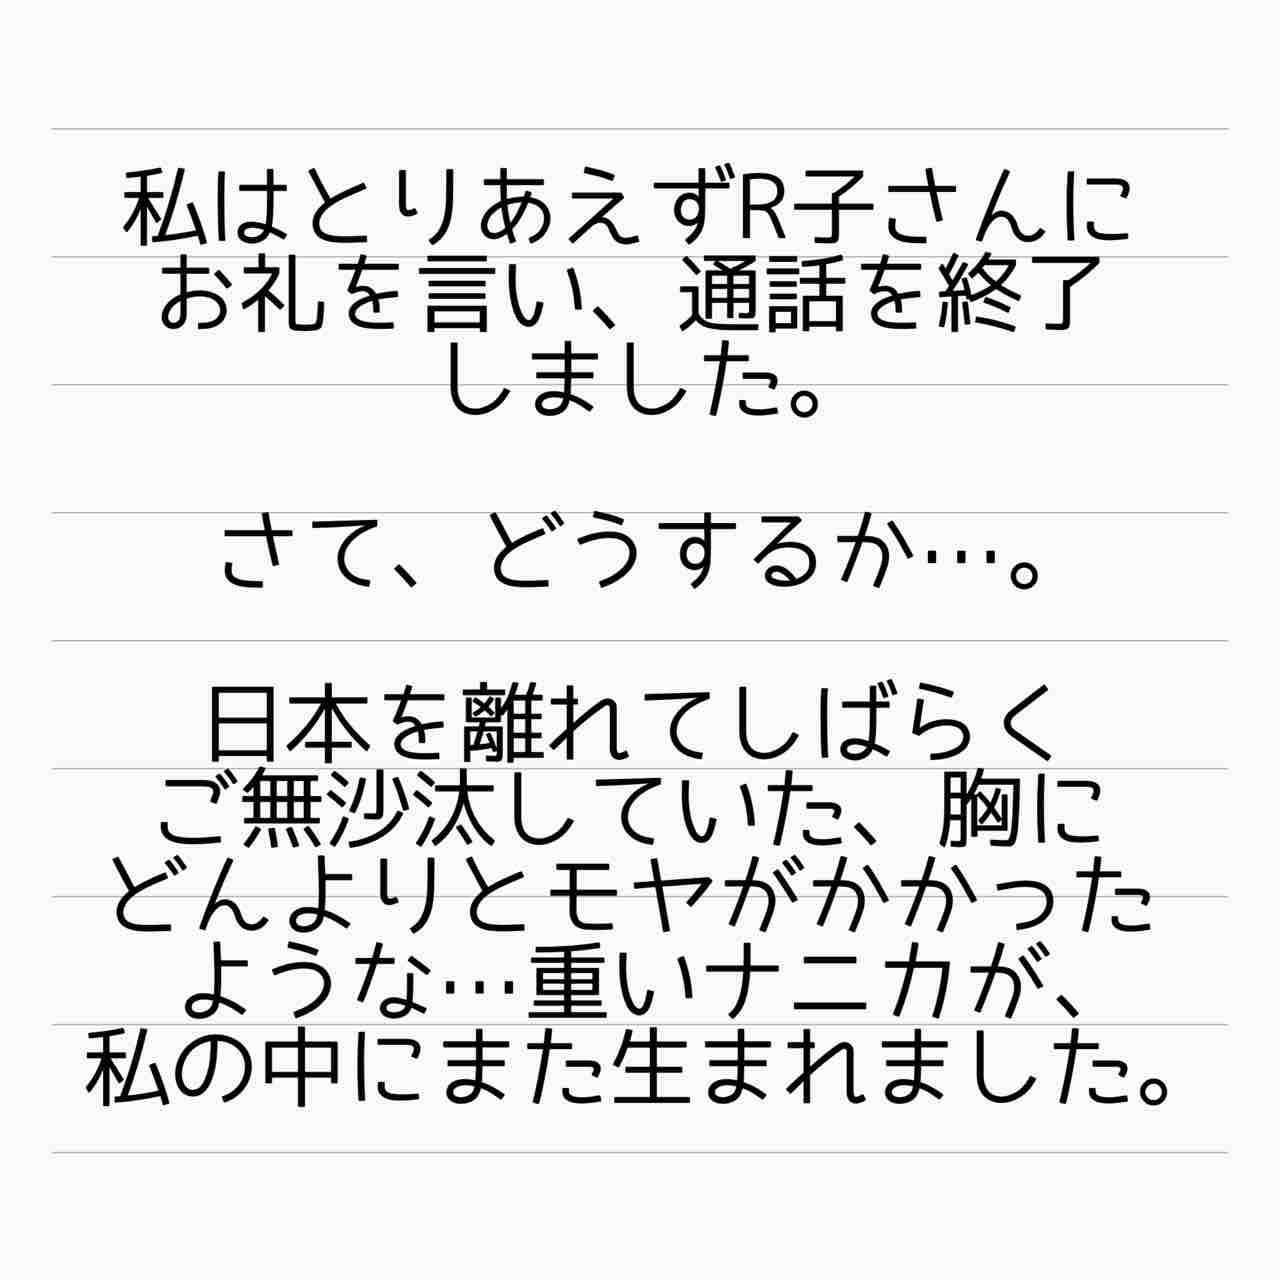 私はとりあえずR子さんに
お礼を言い、通話を終了
しました。
さて、どうするか…。
日本を離れてしばらく
ご無沙汰していた、胸に
どんよりとモヤがかかった
ような…重いナニカが、
私の中にまた生まれました。